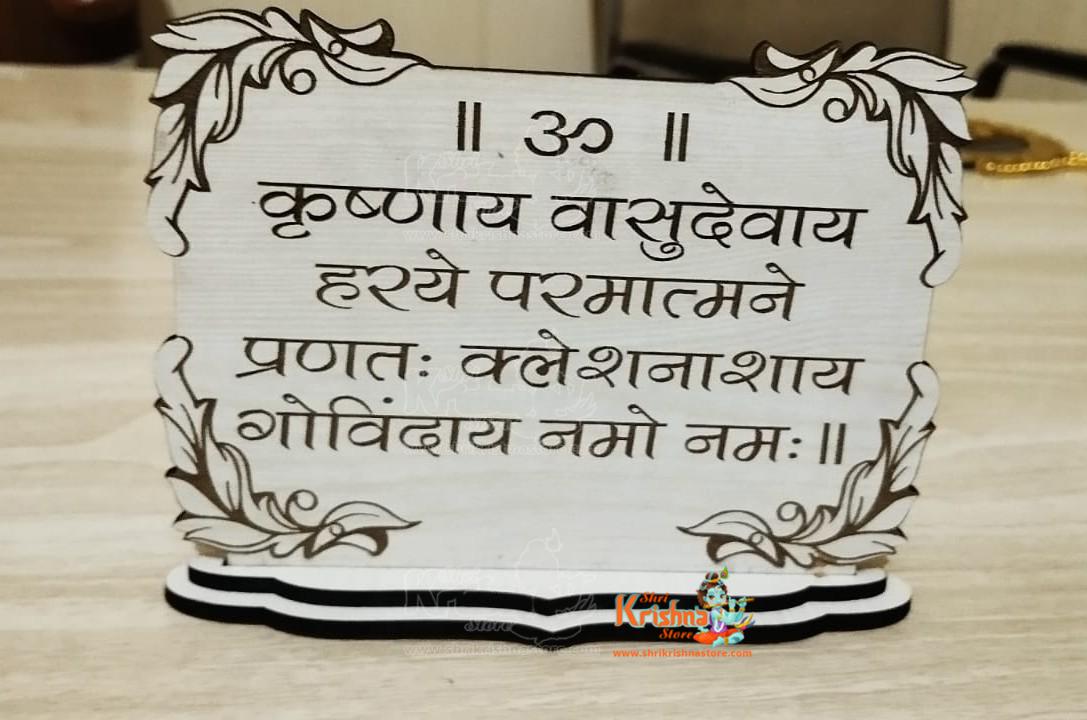 ॥ ॐ ॥
कृष्णाय वासुदेवाय
हरये परमात्मने
प्रणतः क्लेशनाशाय
गोविंदाय नमो नमः॥
Shri
Krishna
Store
www.shrikrishnastore.com